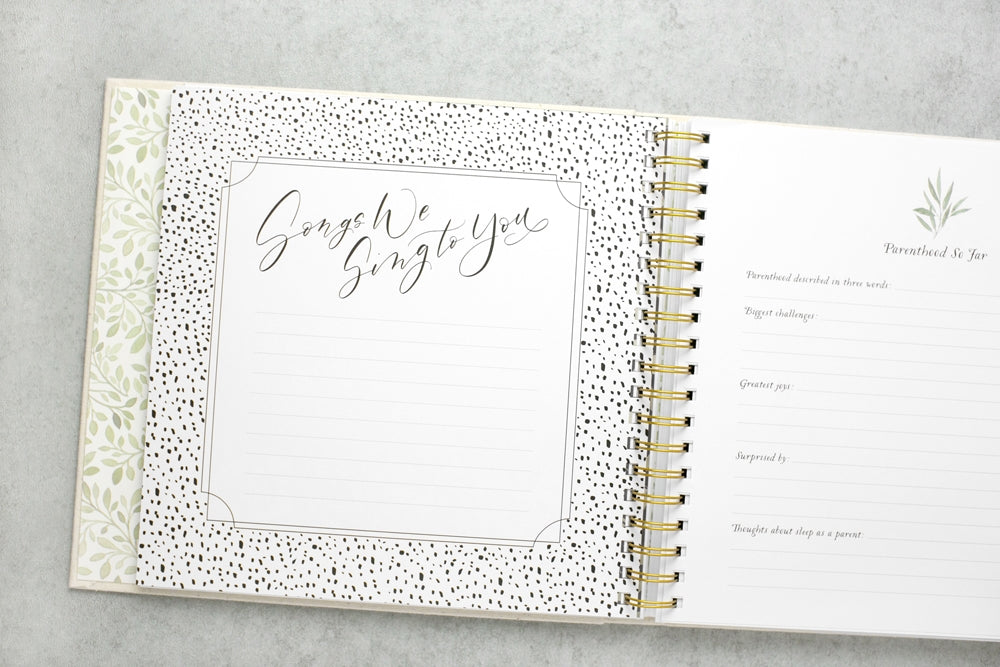 Songs We
Sing to You
Parenthood So Far
Parenthood described in three words:
Biggest challenges:
Greatest joys:
Surprised by:
Thoughts about sleep as a parent: